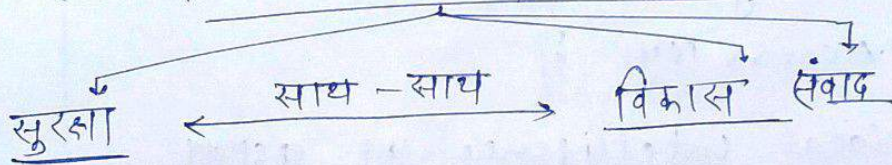 सुरक्षा साथ - साथ विकास संवाद